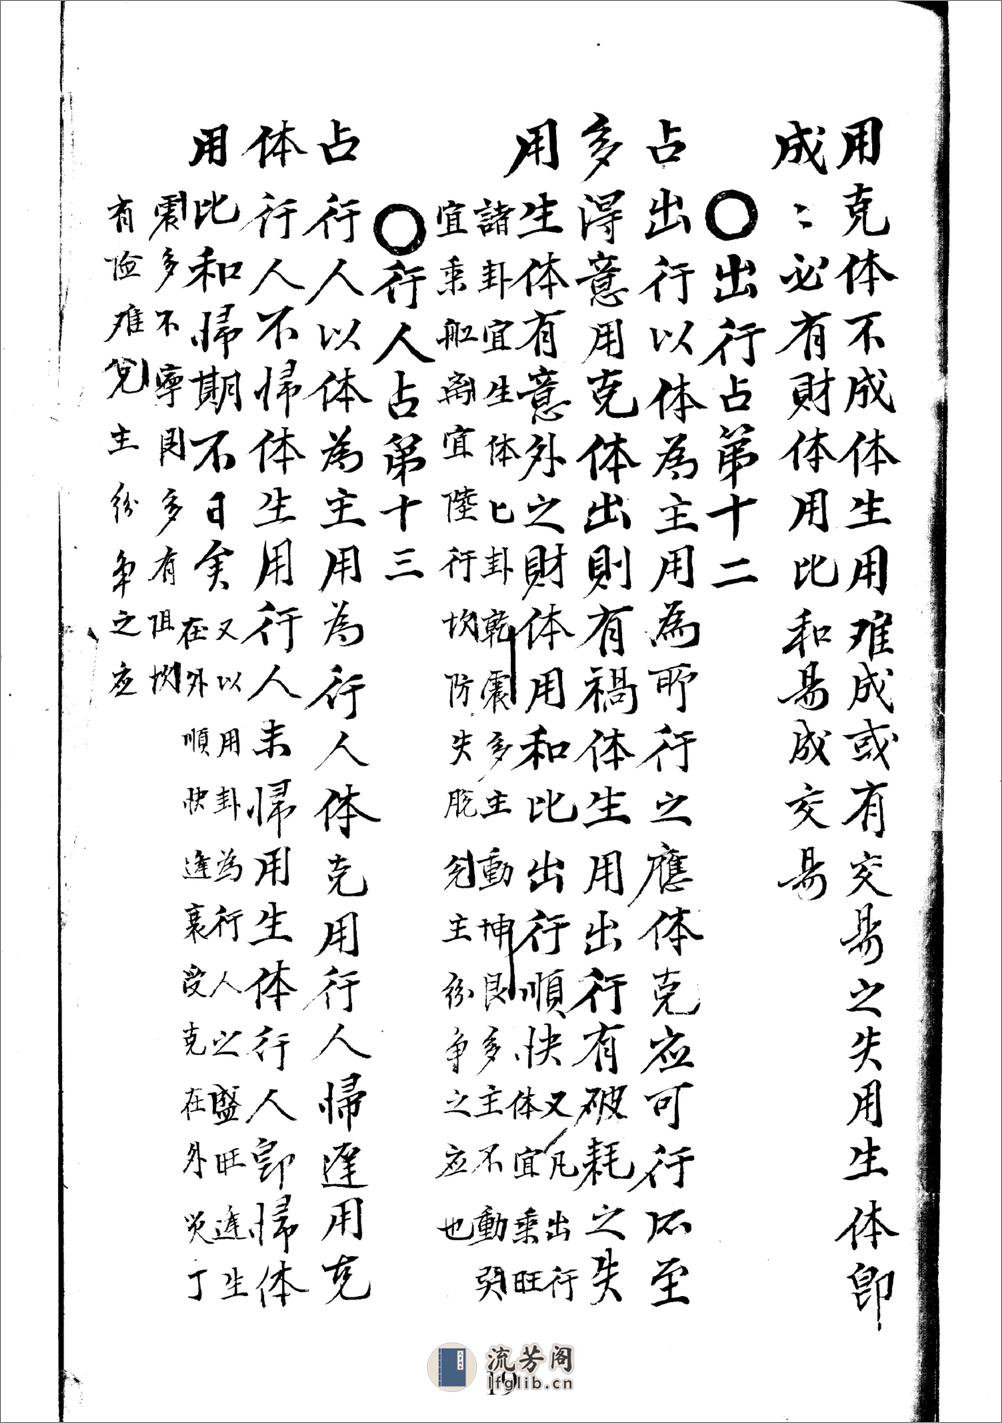 用克体不成体生用难成或有交易之失用生体即
成〻必有財体用比和易成交易
〇出行占第十二
占出行以体為主用為所行之應体克应可行所至
多得意用克体出則有禍体生用出行有破耗之失
用生体有意外之財体用和比出行順快又凡出行体宜乘旺
諸卦宜生体匕卦乾震多主動坤艮多主不動巽
宜乘船离宜陸行坎防失脫兌主紛争之应也
〇行人占第十三
占行人以体為主用為行人体克用行人帰遲用克
体行人不帰体生用行人未帰用生体行人即帰体
用比和帰期不日矣又以用卦為行人之盛旺逢生
在外順快逢衰受克在外災丁
震多不寧艮多有阻坎
有险难兌主紛争之应
流芳阁
lfglib.cn
19